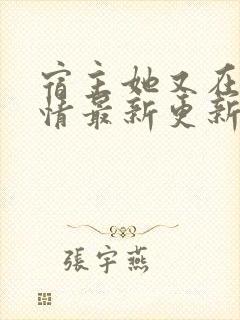 宿主她又在
情最新更新
張宇燕